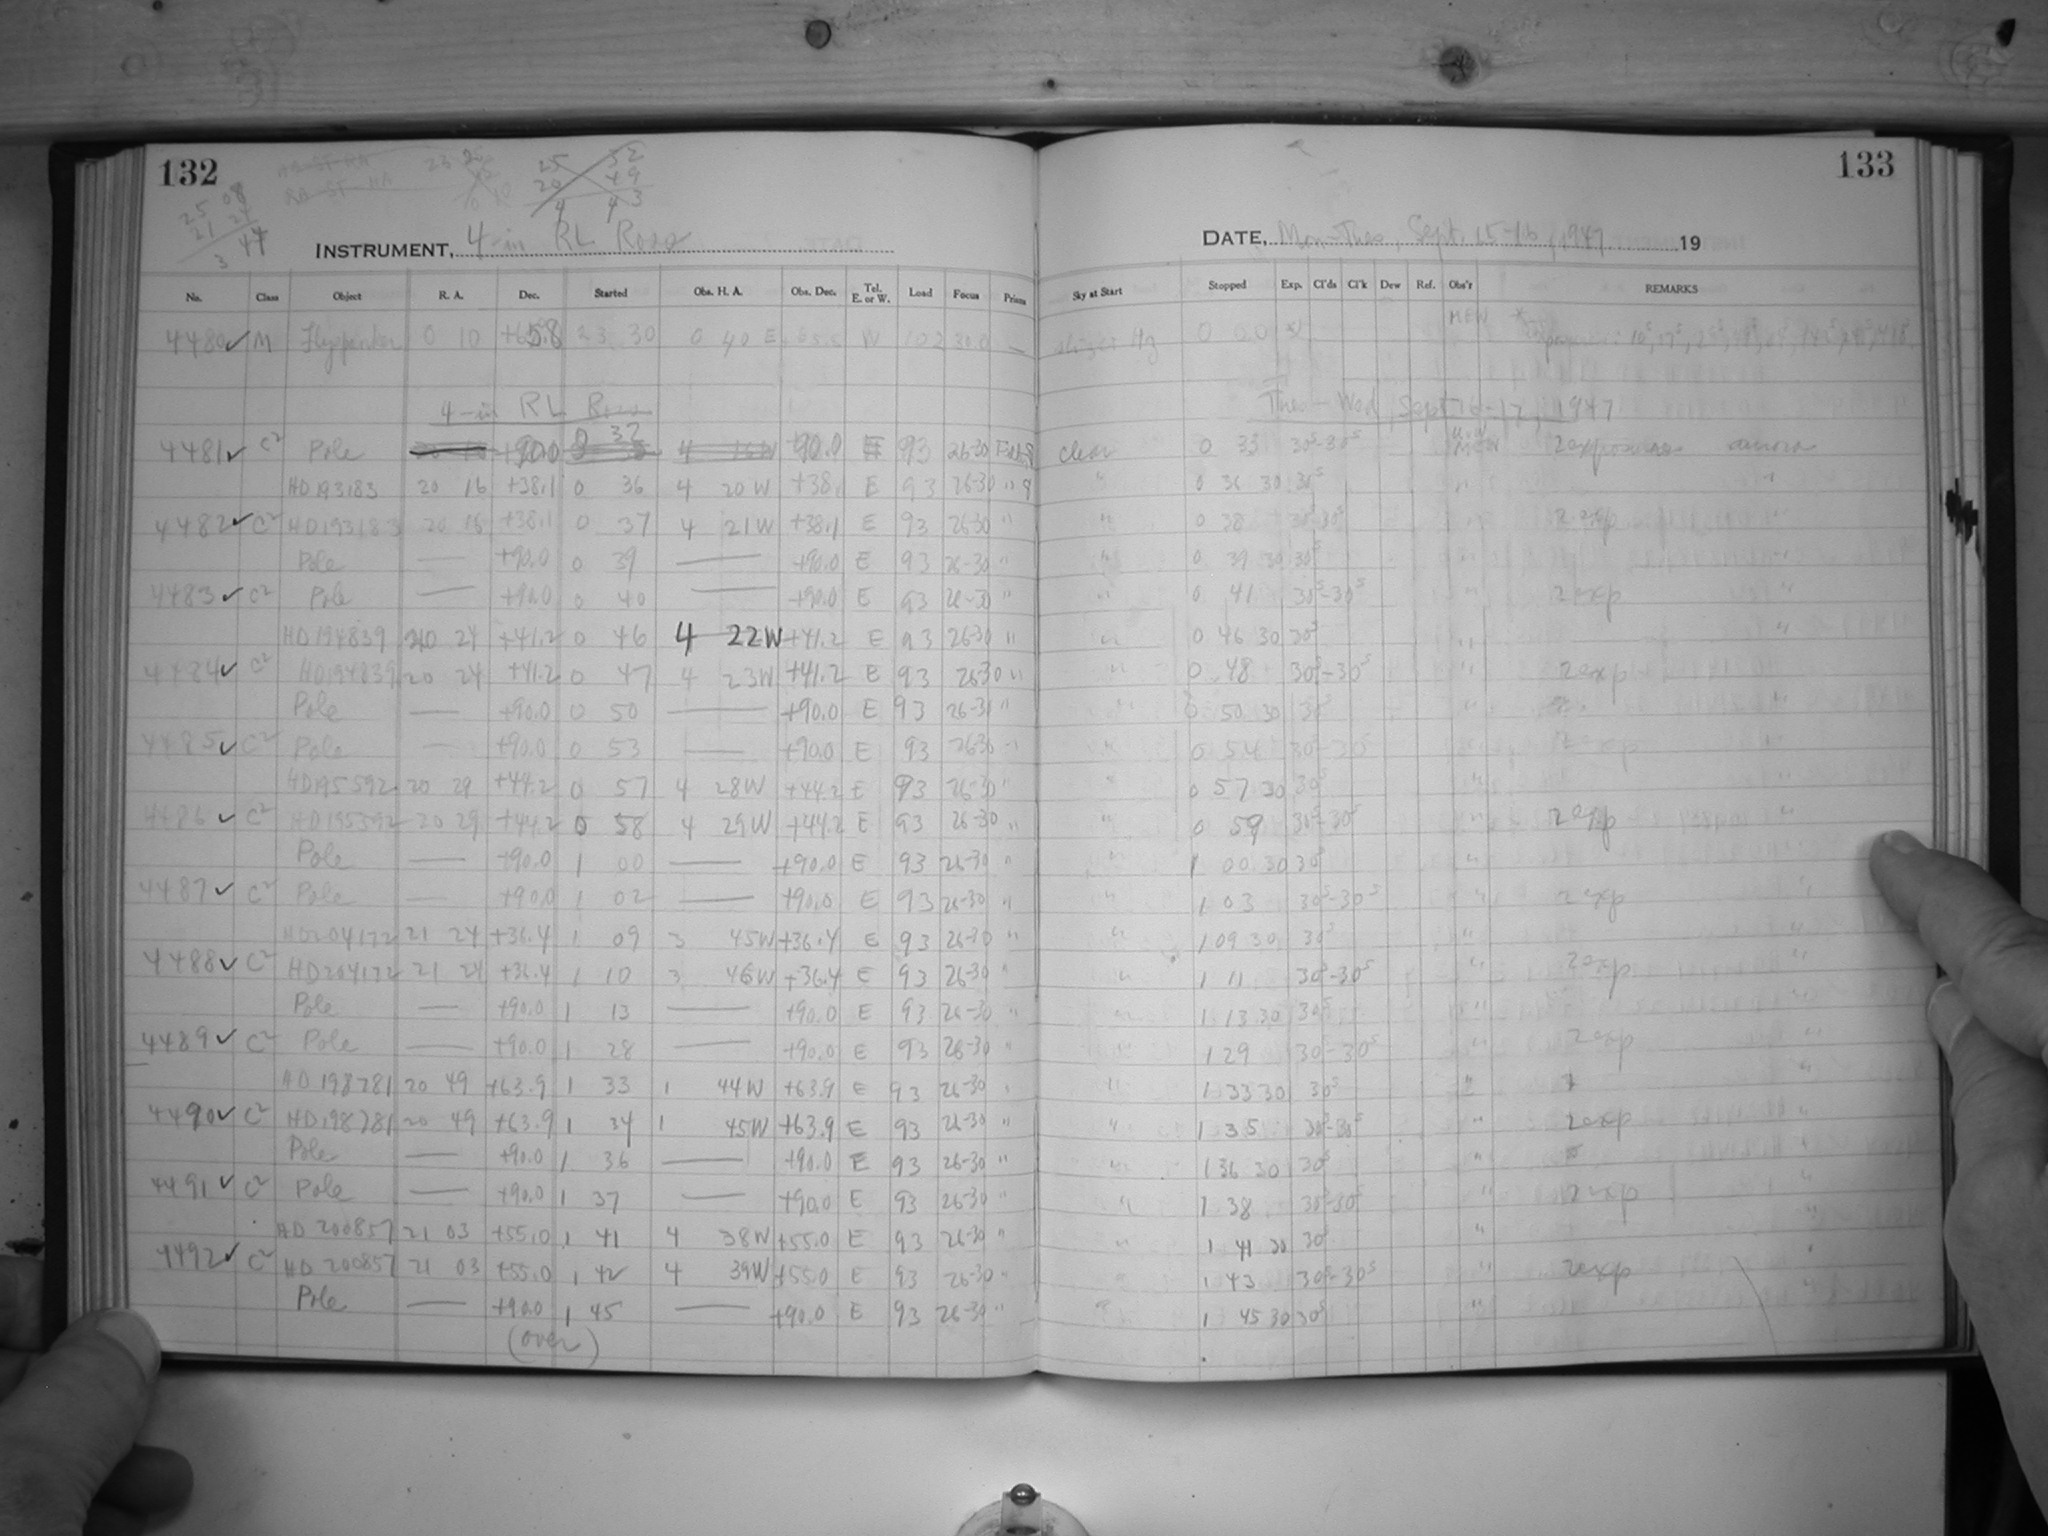 132
133
25 52
20 49
4 43
25 08
21 24
3 44
INSTRUMENT, 4-in RL Ross
DATE, Mon-Tues, Sept. 15-16, 1947 19
No. Class Object R. A. Dec. Started Obs. H. A. Obs. Dec. Tel. E. or W. Load Focus Prism Sky at Start Stopped Exp. Cl'ds Cl'k Dew Ref. Obs'r REMARKS
4480 ✓ M 0 10 +65.8 23 30 0 40 E W 102 30.0 — Hz 0 00 MEW
4-in RL Ross
Tues-Wed, Sept 16-17, 1947
4481 ✓ C2 Pole +90.0 0 32 +90.0 E 93 26-30 clear 0 33 30s-30s MEW 2 exposures aurora
HD193183 20 16 +38.1 0 36 4 20W +38.1 E 93 26-30 " " 0 36 30 30s " "
4482 ✓ C2 HD193183 20 16 +38.1 0 37 4 21W +38.1 E 93 26-30 " " 0 38 30s-30s " 2 exp "
Pole — +90.0 0 39 — +90.0 E 93 26-30 " " 0 39 30 30s " "
4483 ✓ C2 Pole — +90.0 0 40 — +90.0 E 93 26-30 " " 0 41 30s-30s " 2 exp "
HD194839 20 24 +41.2 0 46 4 22W +41.2 E 93 26-30 " " 0 46 30 30s " "
4484 ✓ C2 HD194839 20 24 +41.2 0 47 4 23W +41.2 E 93 26-30 " " 0 48 30s-30s " 2 exp "
Pole — +90.0 0 50 — +90.0 E 93 26-30 " " 0 50 30 30s " "
4485 ✓ C2 Pole — +90.0 0 53 — +90.0 E 93 26-30 " " 0 54 30s-30s " 2 exp "
HD195592 20 29 +44.2 0 57 4 28W +44.2 E 93 26-30 " " 0 57 30 30s " "
4486 ✓ C2 HD195592 20 29 +44.2 0 58 4 29W +44.2 E 93 26-30 " " 0 59 30s-30s " 2 exp "
Pole — +90.0 1 00 — +90.0 E 93 26-30 " " 1 00 30 30s " "
4487 ✓ C2 Pole — +90.0 1 02 — +90.0 E 93 26-30 " " 1 03 30s-30s " 2 exp "
HD204172 21 24 +36.4 1 09 3 45W +36.4 E 93 26-30 " " 1 09 30 30s " "
4488 ✓ C2 HD204172 21 24 +36.4 1 10 3 46W +36.4 E 93 26-30 " " 1 11 30s-30s " 2 exp "
Pole — +90.0 1 13 — +90.0 E 93 26-30 " " 1 13 30 30s " "
4489 ✓ C2 Pole — +90.0 1 28 — +90.0 E 93 26-30 " " 1 29 30s-30s " 2 exp "
HD 198781 20 49 +63.9 1 33 1 44W +63.9 E 93 26-30 " " 1 33 30 30s " "
4490 ✓ C2 HD198781 20 49 +63.9 1 34 1 45W +63.9 E 93 26-30 " " 1 35 30s-30s " 2 exp "
Pole — +90.0 1 36 — +90.0 E 93 26-30 " " 1 36 30 30s " "
4491 ✓ C2 Pole — +90.0 1 37 — +90.0 E 93 26-30 " " 1 38 30s-30s " 2 exp "
HD 200857 21 03 +55.0 1 41 4 38W +55.0 E 93 26-30 " " 1 41 30 30s " "
4492 ✓ C2 HD 200857 21 03 +55.0 1 42 4 39W +55.0 E 93 26-30 " " 1 43 30s-30s " 2 exp "
Pole — +90.0 1 45 — +90.0 E 93 26-30 " " 1 45 30 30s " "
(over)